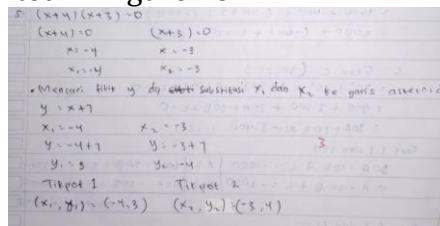 5. (x+4)(x+3)=0
(x+4)=0 (x+3)=0
x=-4 x=-3
x₁=-4 x₂=-3
• Mencari titik y dg Substitusi x₁ dan x₂ ke garis
y = x+7
x₁=-4 x₂=-3
y=-4+7 y=-3+7
y₁=3 y₂=4
3
Titpot 1 Titpot 2
(x₁, y₁) = (-4,3) (x₂, y₂) = (-3,4)